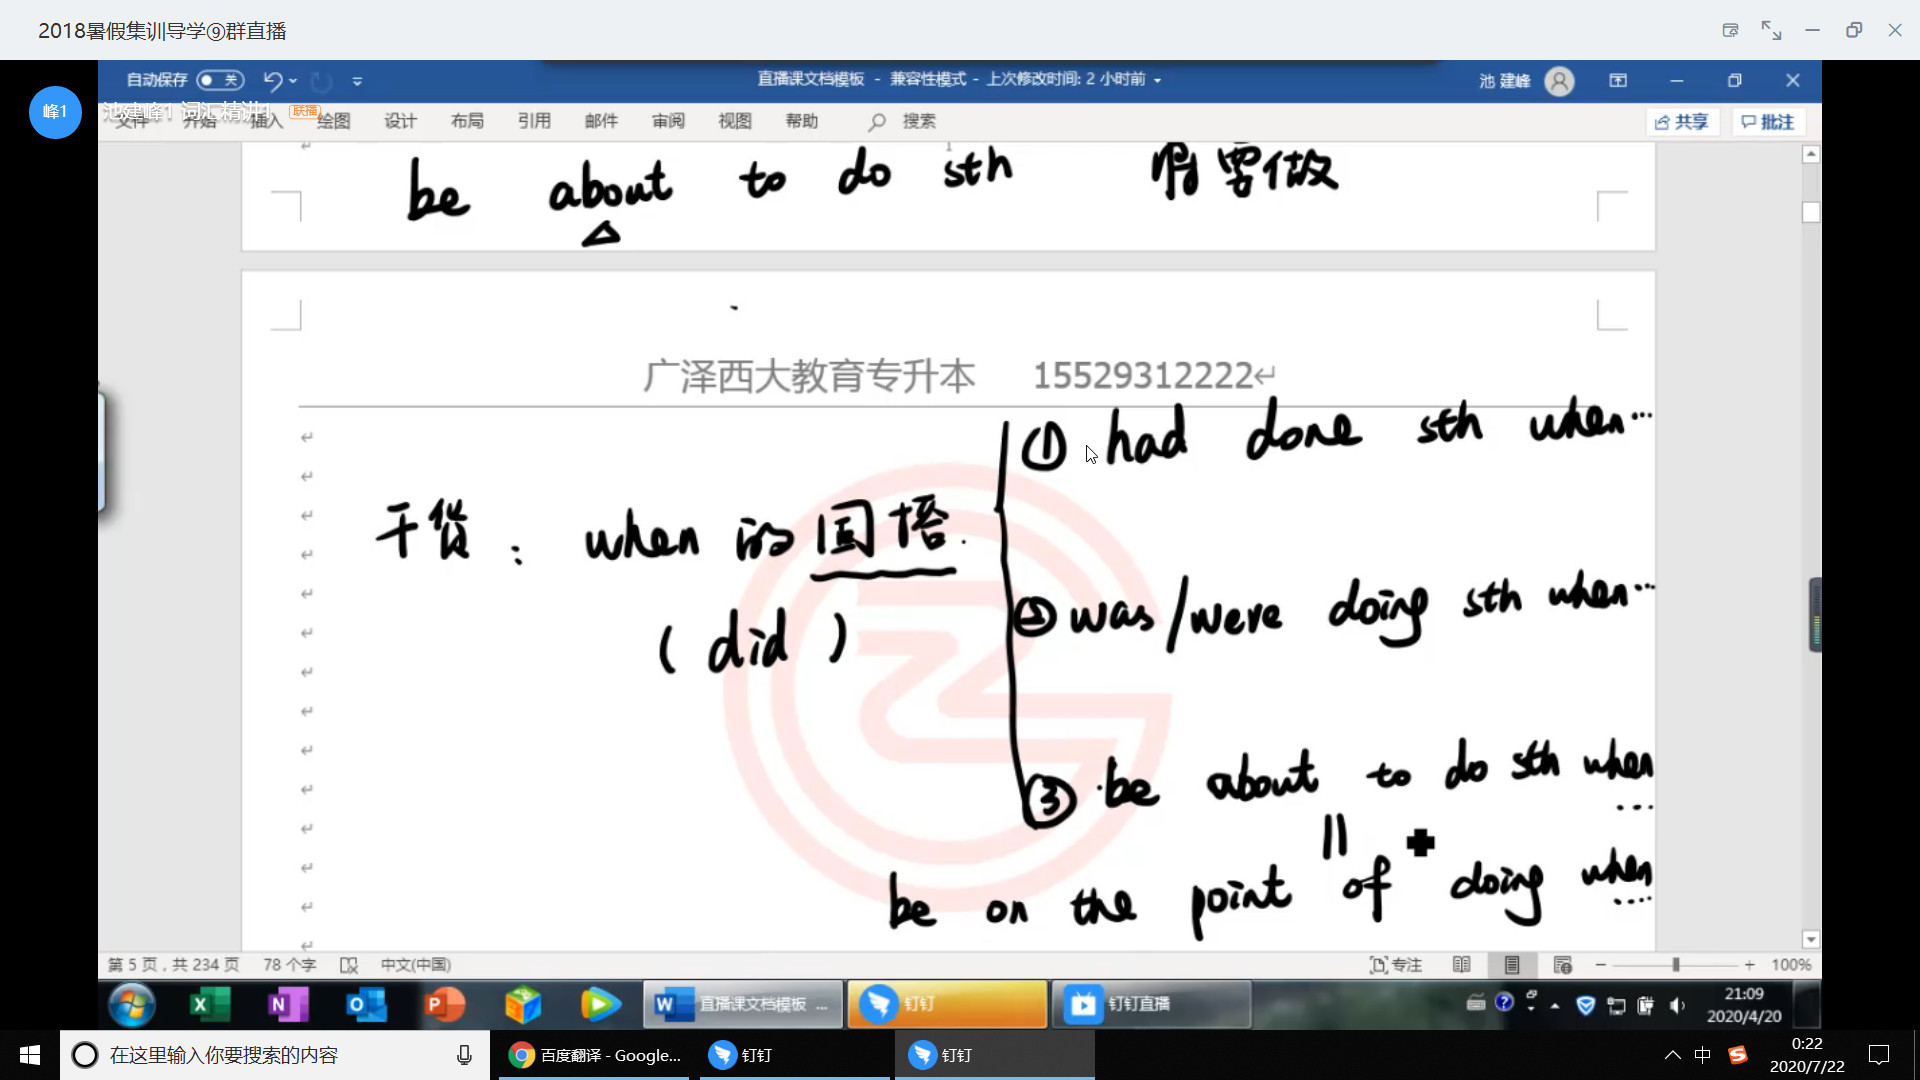 2018暑假集训导学⑨群直播
自动保存 关 直播课文档模板 - 兼容性模式 - 上次修改时间: 2 小时前 池 建峰
峰1 池建峰1 词汇精讲1 联播
文件 开始 插入 绘图 设计 布局 引用 邮件 审阅 视图 帮助 搜索 共享 批注
be about to do sth 要做
广泽西大教育专升本 15529312222
① had done sth when…
干货: when 的固搭.
② was/were doing sth when…
(did)
③ be about to do sth when
…
||
be on the point of doing when
…
第 5 页，共 234 页 78 个字 中文(中国) 专注 100%
直播课文档模板 ... 钉钉 钉钉直播 21:09
2020/4/20
在这里输入你要搜索的内容 百度翻译 - Google... 钉钉 钉钉 中 0:22
2020/7/22